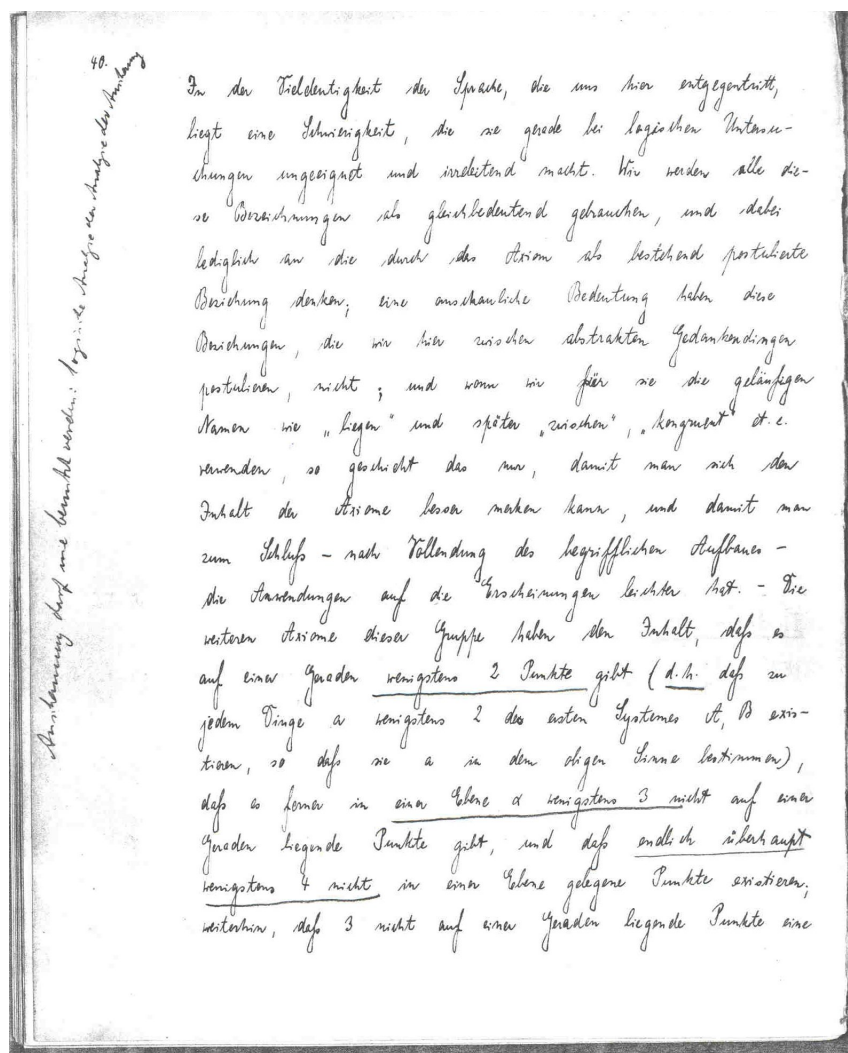 40.
In der Vieldeutigkeit der Sprache, die uns hier entgegentritt,
liegt eine Schwierigkeit, die sie gerade bei logischen Untersu-
chungen ungeeignet und irreleitend macht. Wir werden alle die-
se Bezeichnungen als gleichbedeutend gebrauchen, und dabei
lediglich an die durch das Axiom als bestehend postulierte
Beziehung denken; eine anschauliche Bedeutung haben diese
Beziehungen, die wir hier zwischen abstrakten Gedankendingen
postulieren, nicht; und wenn wir für sie die geläufigen
Namen wie „liegen“ und später „zwischen“, „kongruent“ et.c.
verwenden, so geschieht das nur, damit man sich den
Inhalt der Axiome besser merken kann, und damit man
zum Schluß – nach Vollendung des begrifflichen Aufbaues –
die Anwendungen auf die Erscheinungen leichter hat. – Die
weiteren Axiome dieser Gruppe haben den Inhalt, daß es
auf einer Geraden wenigstens 2 Punkte gibt (d.h. daß zu
jedem Dinge a wenigstens 2 des ersten Systemes A, B exis-
tieren, so daß sie a in dem obigen Sinne bestimmen),
daß es ferner in einer Ebene α wenigstens 3 nicht auf einer
Geraden liegende Punkte gibt, und daß endlich überhaupt
wenigstens 4 nicht in einer Ebene gelegene Punkte existieren;
weiterhin, daß 3 nicht auf einer Geraden liegende Punkte eine
Anschauung darf nie benutzt werden: logische Analyse der Analyse der Anschauung